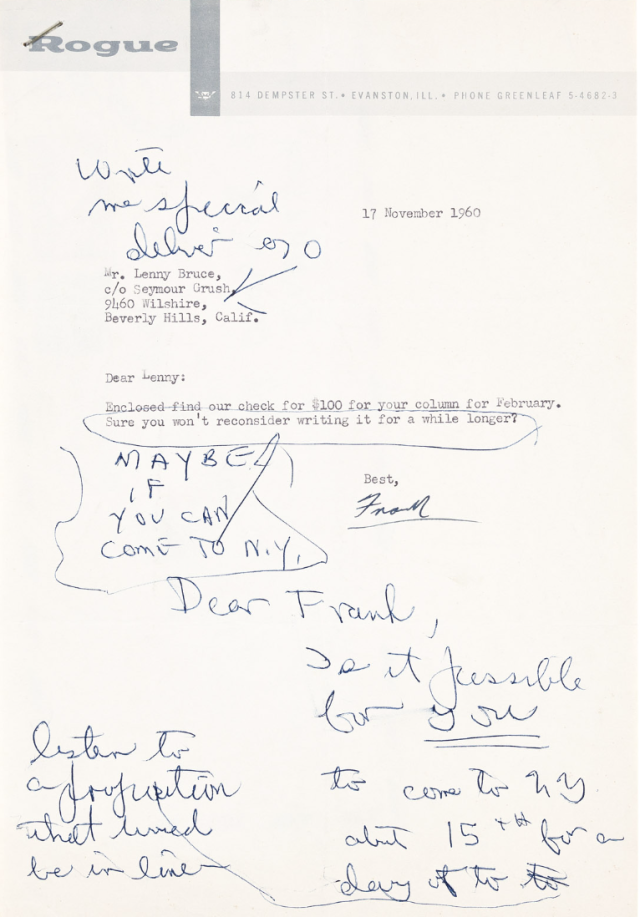 Rogue
814 DEMPSTER ST. • EVANSTON, ILL. • PHONE GREENLEAF 5-4682-3
Write
me special
deliver
17 November 1960
Mr. Lenny Bruce,
c/o Seymour Grush,
9460 Wilshire,
Beverly Hills, Calif.
Dear Lenny:
Enclosed find our check for $100 for your column for February.
Sure you won't reconsider writing it for a while longer?
MAYBE
IF
YOU CAN
COME TO N.Y.
Best,
Frank
Dear Frank,
Is it possible
for you
to come to NY
abut 15th for a
day of to to
listen to
a
that
be in line